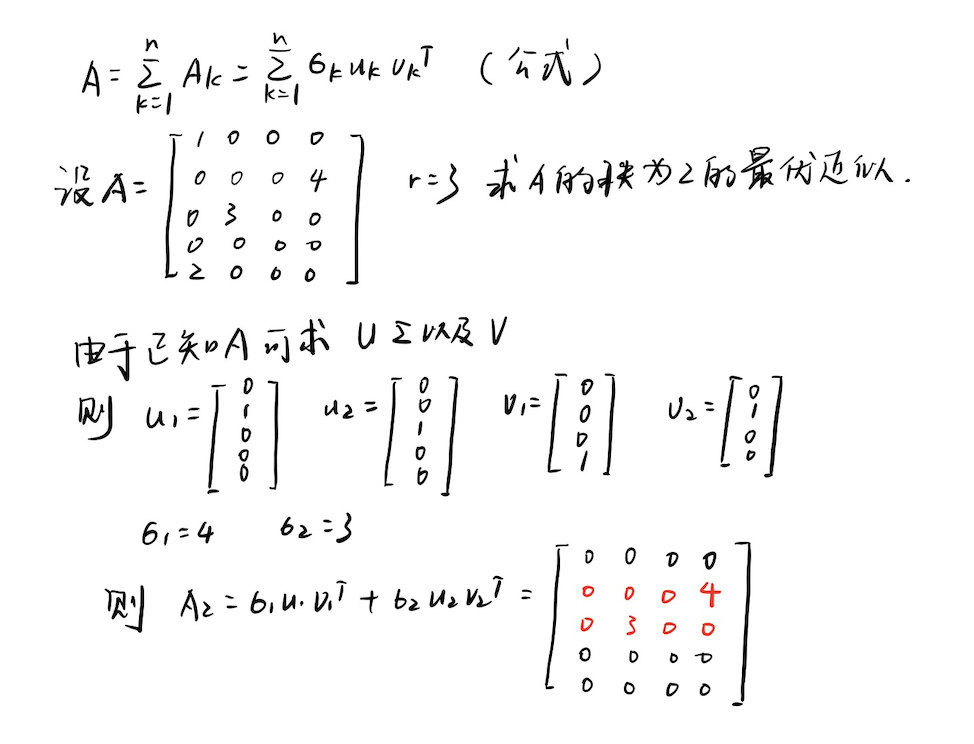 A = ∑_{k=1}^{n} A_k = ∑_{k=1}^{n} σ_k u_k v_k^T (公式)
设 A = [1 0 0 0; 0 0 0 4; 0 3 0 0; 0 0 0 0; 2 0 0 0] r=3 求A的秩为2的最优近似.
由于已知A可求 U Σ 以及 V
则 u₁ = [0; 1; 0; 0; 0] u₂ = [0; 0; 1; 0; 0] v₁ = [0; 0; 0; 1] v₂ = [0; 1; 0; 0]
σ₁=4 σ₂=3
则 A₂ = σ₁u₁v₁^T + σ₂u₂v₂^T = [0 0 0 0; 0 0 0 4; 0 3 0 0; 0 0 0 0; 0 0 0 0]